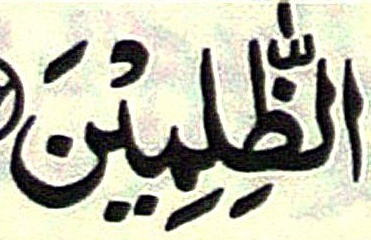 الظّٰلِمِیْنَ